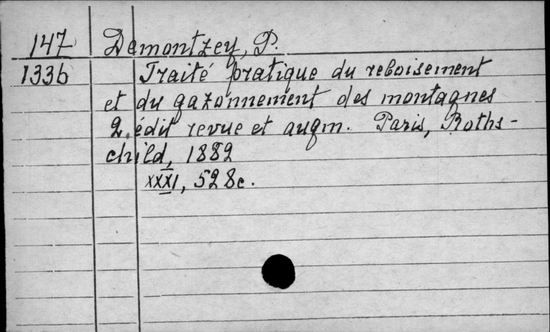 147 Demontzey, P.
1336 Traité pratique du reboisement
et du gazonnement des montagnes
2 édit revue et augm. Paris, Roths-
child, 1882
XXXI, 528c.